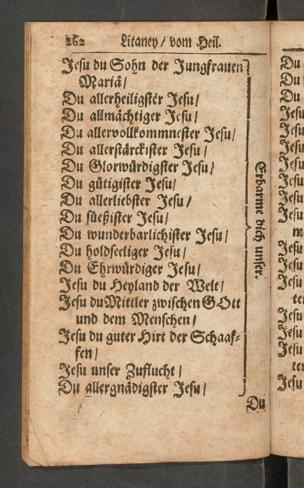 262 Litaney / vom Heil.
Jesu du Sohn der Jungfrauen
Mariä /
Du allerheiligster Jesu /
Du allmächtiger Jesu /
Du allervollkommnester Jesu /
Du allerstärckister Jesu /
Du Glorwürdigster Jesu /
Du gütigister Jesu /
Du allerliebster Jesu /
Du süeßister Jesu /
Du wunderbarlichister Jesu /
Du holdseeliger Jesu /
Du Ehrwürdiger Jesu /
Jesu du Heyland der Welt /
Jesu du Mittler zwischen GOtt
und dem Menschen /
Jesu du guter Hirt der Schaaf-
fen /
Jesu unser Zuflucht /
Du allergnädigster Jesu /
Erbarme dich unser.
Du